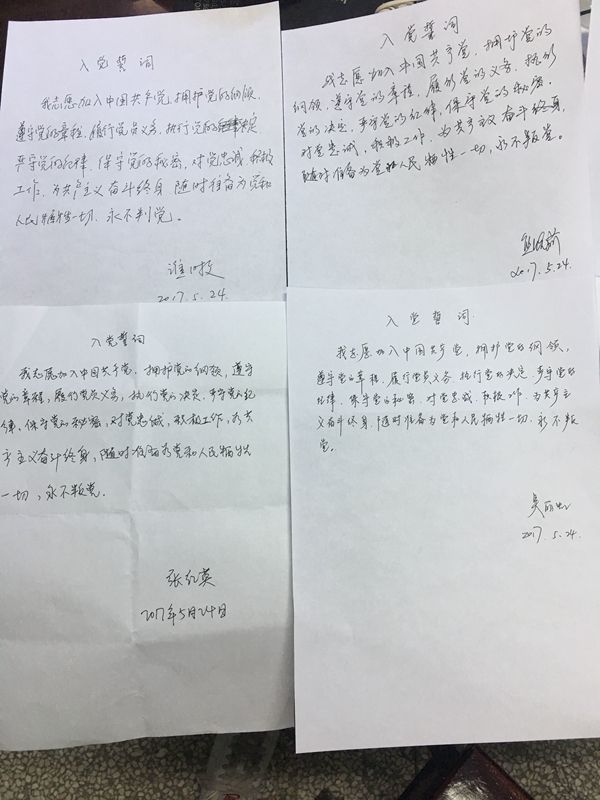 入党誓词
我志愿加入中国共产党,拥护党的纲领,
遵守党的章程,履行党员义务,执行党的决定
严守党的纪律,保守党的秘密,对党忠诚,积极
工作,为共产主义奋斗终身,随时准备为党和
人民牺牲一切,永不判党。
2017.5.24.
入党誓词
我志愿加入中国共产党,拥护党的
纲领,遵守党的章程,履行党的义务,执行
党的决定,严守党的纪律,保守党的秘密,
对党忠诚,积极工作,为共产主义奋斗终身,
随时准备为党和人民牺牲一切,永不叛党。
2017.5.24.
入党誓词
我志愿加入中国共产党,拥护党的纲领,遵守
党的章程,履行党员义务,执行党的决定,严守党的纪
律,保守党的秘密,对党忠诚,积极工作,为共
产主义奋斗终身,随时准备为党和人民牺牲
一切,永不叛党.
张红英
2017年5月24日
入党誓词
我志愿加入中国共产党,拥护党的纲领,
遵守党的章程,履行党员义务,执行党的决定,严守党的
纪律,保守党的秘密,对党忠诚,积极工作,为共产主
义奋斗终身,随时准备为党和人民牺牲一切,永不叛
党。
吴丽虹
2017.5.24.